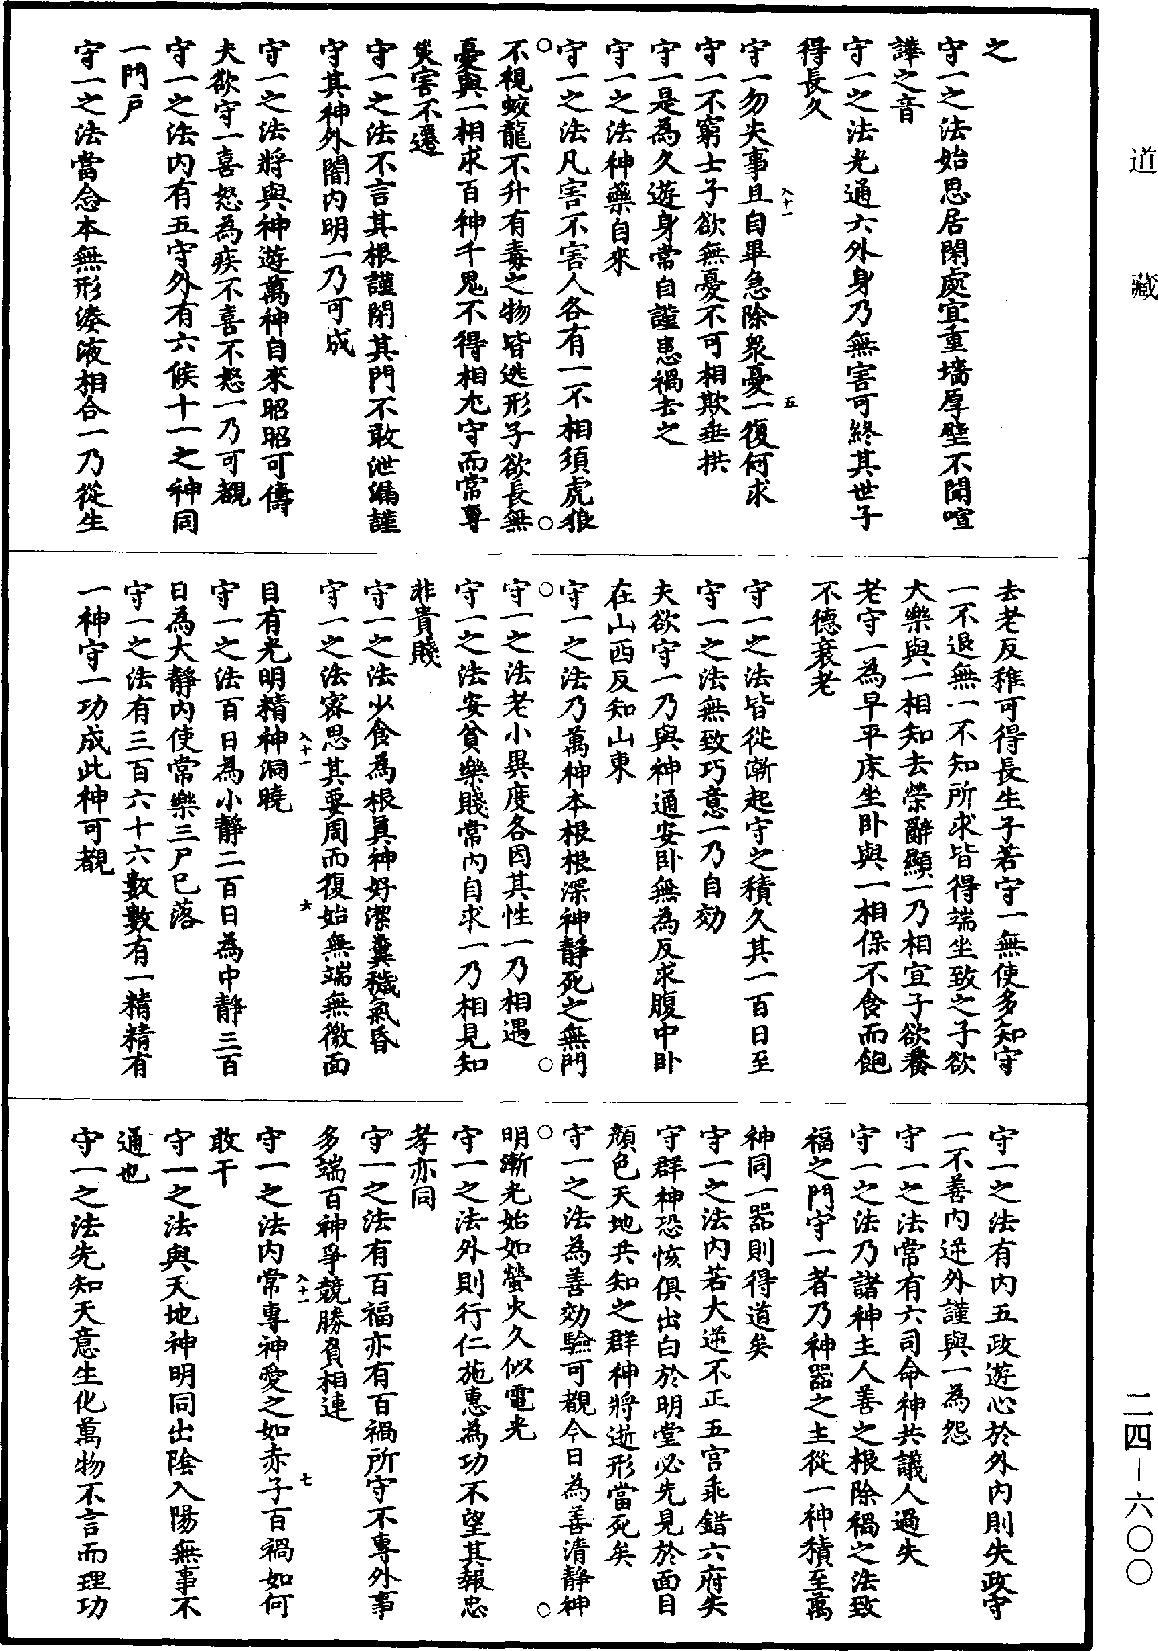 道藏
之
守一之法始思居閑處宜重墻厚壁不聞喧
譁之音
守一之法光通六外身乃無害可終其世子
得長久
守一勿失事且自畢急除衆憂一復何求
入十一
五
守一不窮士子欲無憂不可相欺垂拱
守一是為久遊身常自謹患禍去之
守一之法神藥自來
守一之法凡害不害人各有一不相須虎狼
不視蛟龍不升有毒之物皆逃形子欲長無
憂與一相求百神千鬼不得相尤守而常專
災害不遷
守一之法不言其根謹閉其門不敢泄漏謹
守其神外闇内明一乃可成
守一之法將與神遊萬神自來昭昭可儔
夫欲守一喜怒為疾不喜不怒一乃可覩
守一之法内有五守外有六候十一之神同
一門户
守一之法當念本無形湊液相合一乃從生
去老反稚可得長生子若守一無使多知守
一不退無一不知所求皆得端坐致之子欲
大樂與一相知去榮辭顯一乃相宜子欲養
老守一為早平床坐卧與一相保不食而飽
不德衰老
守一之法皆從漸起守之積久其一百日至
守一之法無致巧意一乃自効
夫欲守一乃與神通安卧無為反求腹中卧
在山西反知山東
守一之法乃萬神本根根深神靜死之無門
守一之法老小異度各因其性一乃相遇
守一之法安貧樂賤常内自求一乃相見知
非貴賤
守一之法少食為根真神好潔糞穢氣昏
守一之法密思其要周而復始無端無徼面
入十一
六
目有光明精神洞曉
守一之法百日為小靜二百日為中靜三百
日為大靜内使常樂三尸已落
守一之法有三百六十六數數有一精精有
一神守一功成此神可覩
守一之法有内五政遊心於外内則失政守
一不善内逆外謹與一為怨
守一之法常有六司命神共議人過失
守一之法乃諸神主人善之根除禍之法致
福之門守一者乃神器之主從一神積至萬
神同一器則得道矣
守一之法内若大逆不正五宫乖錯六府失
守群神恐恢俱出白於明堂必先見於面目
顔色天地共知之群神將逝形當死矣
守一之法為善効驗可覩今日為善清靜神
明漸光始如螢火久似電光
守一之法外則行仁施惠為功不望其報忠
孝亦同
守一之法有百福亦有百禍所守不專外事
多端百神爭競勝負相連
入十一
七
守一之法内常專神愛之如赤子百禍如何
敢干
守一之法與天地神明同出陰入陽無事不
通也
守一之法先知天意生化萬物不言而理功
二四－六〇〇